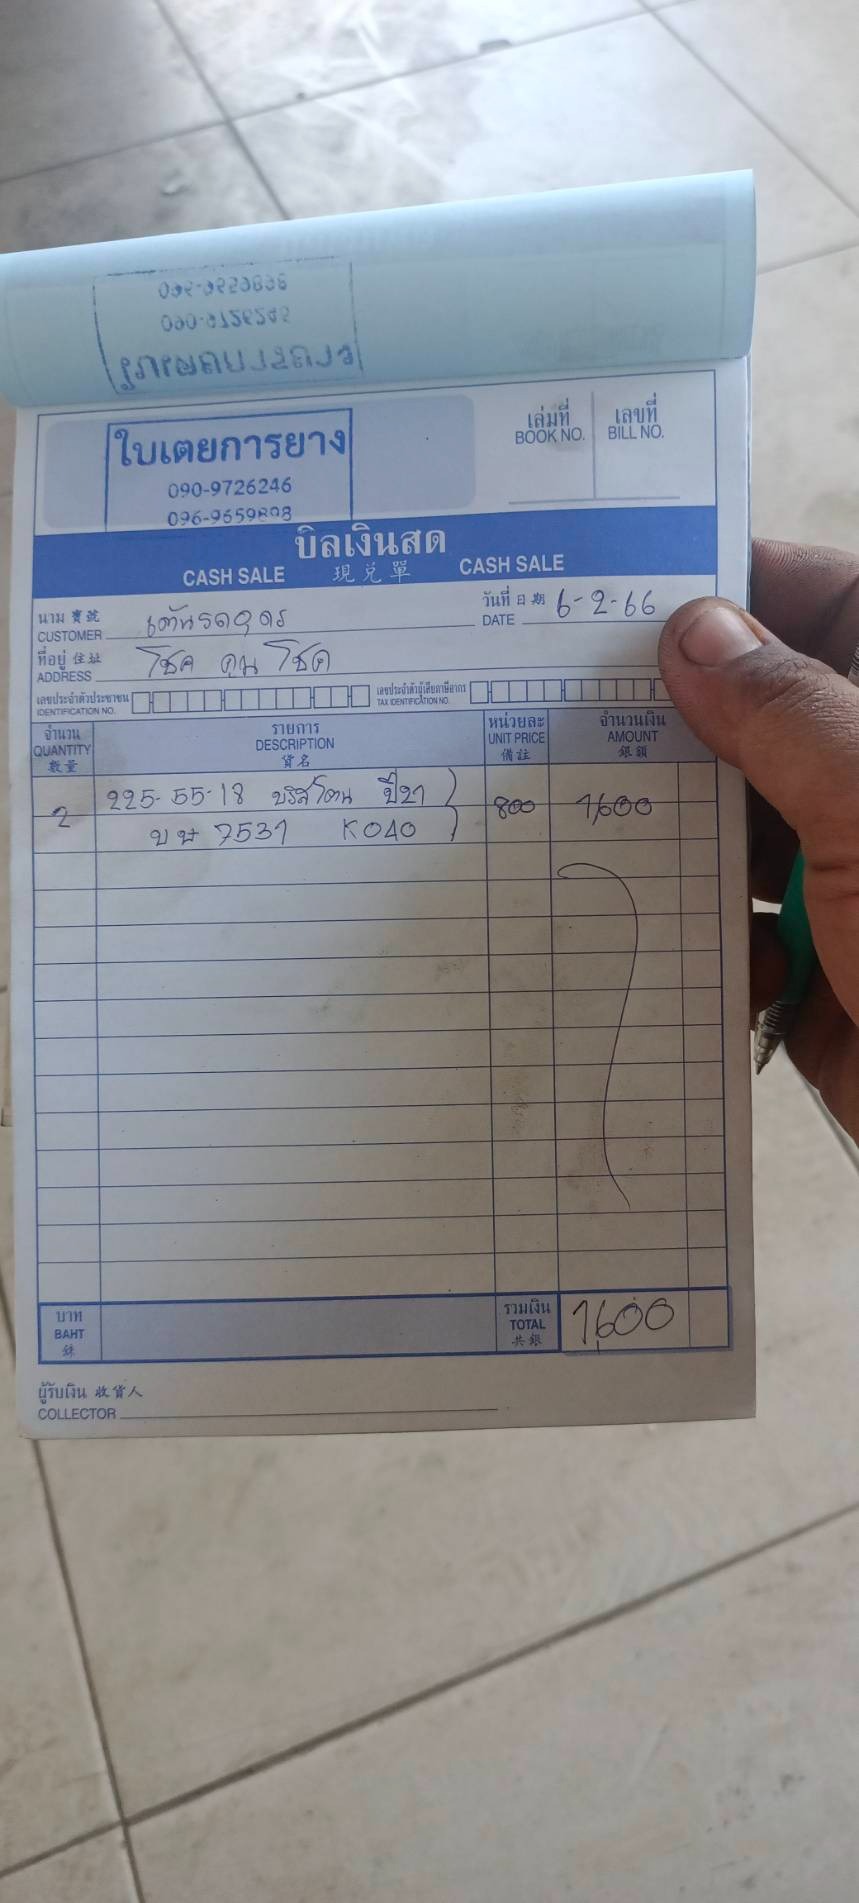 ใบเตยการยาง
090-9726246
096-9659898
เล่มที่ เลขที่
BOOK NO. BILL NO.
บิลเงินสด
CASH SALE 現兌單 CASH SALE
นาม 寶號
CUSTOMER
วันที่ 日期 6-2-66
DATE
ที่อยู่ 住址 โชค คูน โชค
ADDRESS
เลขประจำตัวประชาชน
IDENTIFICATION NO.
เลขประจำตัวผู้เสียภาษีอากร
TAX IDENTIFICATION NO.
จำนวน รายการ หน่วยละ จำนวนเงิน
QUANTITY DESCRIPTION UNIT PRICE AMOUNT
數量 貨名 備註 銀額
2 225-55-18 บริสโตน ปี21 800 1,600
บษ 7531 K040
บาท รวมเงิน
BAHT TOTAL 1600
銖 共銀
ผู้รับเงิน 收貨人
COLLECTOR